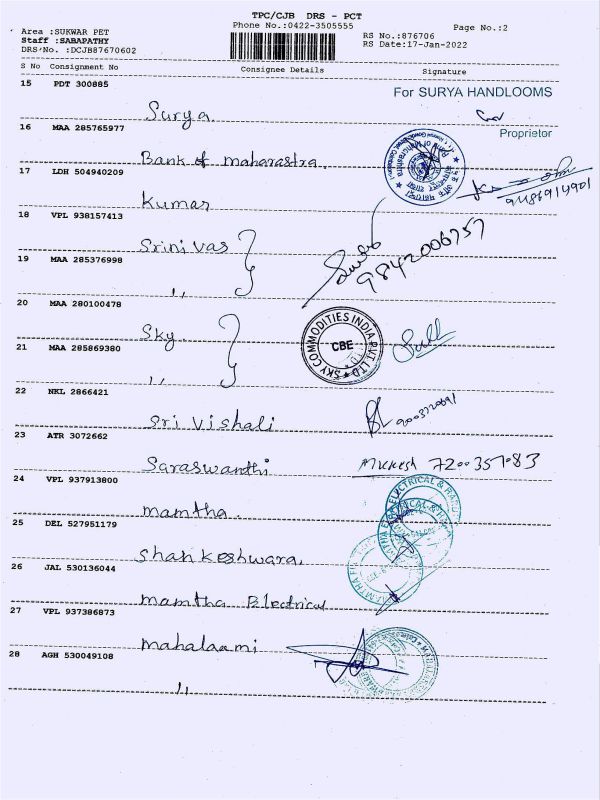 TPC/CJB DRS - PCT
Area :SUKWAR PET
Phone No.:0422-3505555
Page No.:2
Staff :SABAPATHY
RS No.:876706
DRS No. :DCJB87670602
RS Date:17-Jan-2022
S No Consignment No Consignee Details Signature
15 PDT 300885
For SURYA HANDLOOMS
Surya.
Proprietor
16 MAA 285765977
Bank of maharastra
17 LDH 504940209
Kumar
18 VPL 938157413
Srinivas
9842006757
19 MAA 285376998
,,
20 MAA 280100478
Sky
SKY COMMODITIES INDIA PVT. LTD
CBE
21 MAA 285869380
,,
22 NKL 2866421
Sri Vishali
23 ATR 3072662
Saraswanthi
Mukesh
24 VPL 937913800
mamtha.
25 DEL 527951179
Shankeshwara.
26 JAL 530136044
mamtha Electrical
27 VPL 937386873
mahalaami
28 AGH 530049108
,,